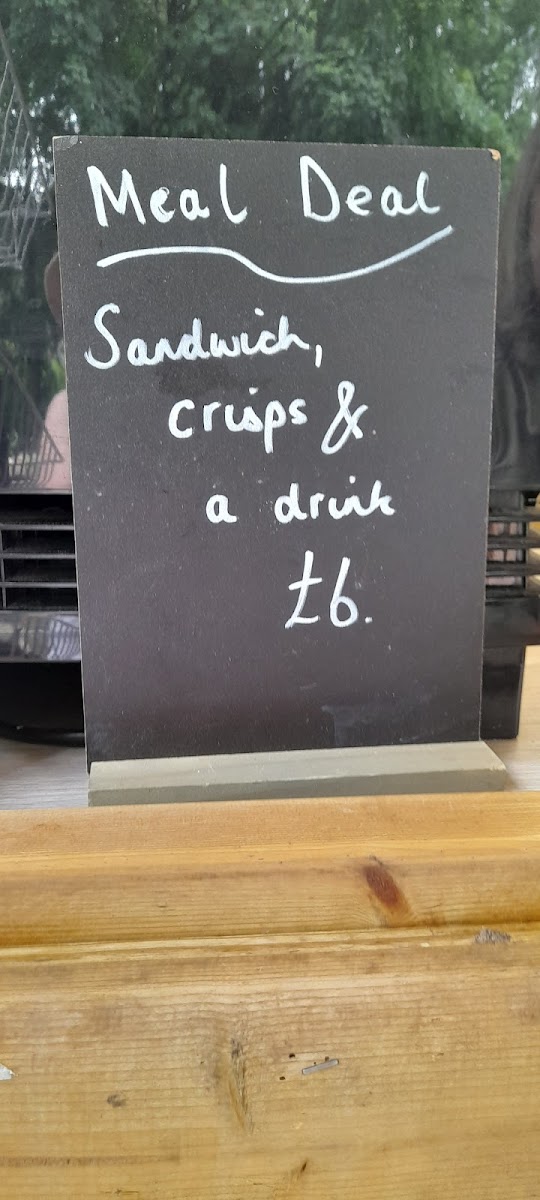 Meal Deal
Sandwich,
crisps &
a drink
£6.